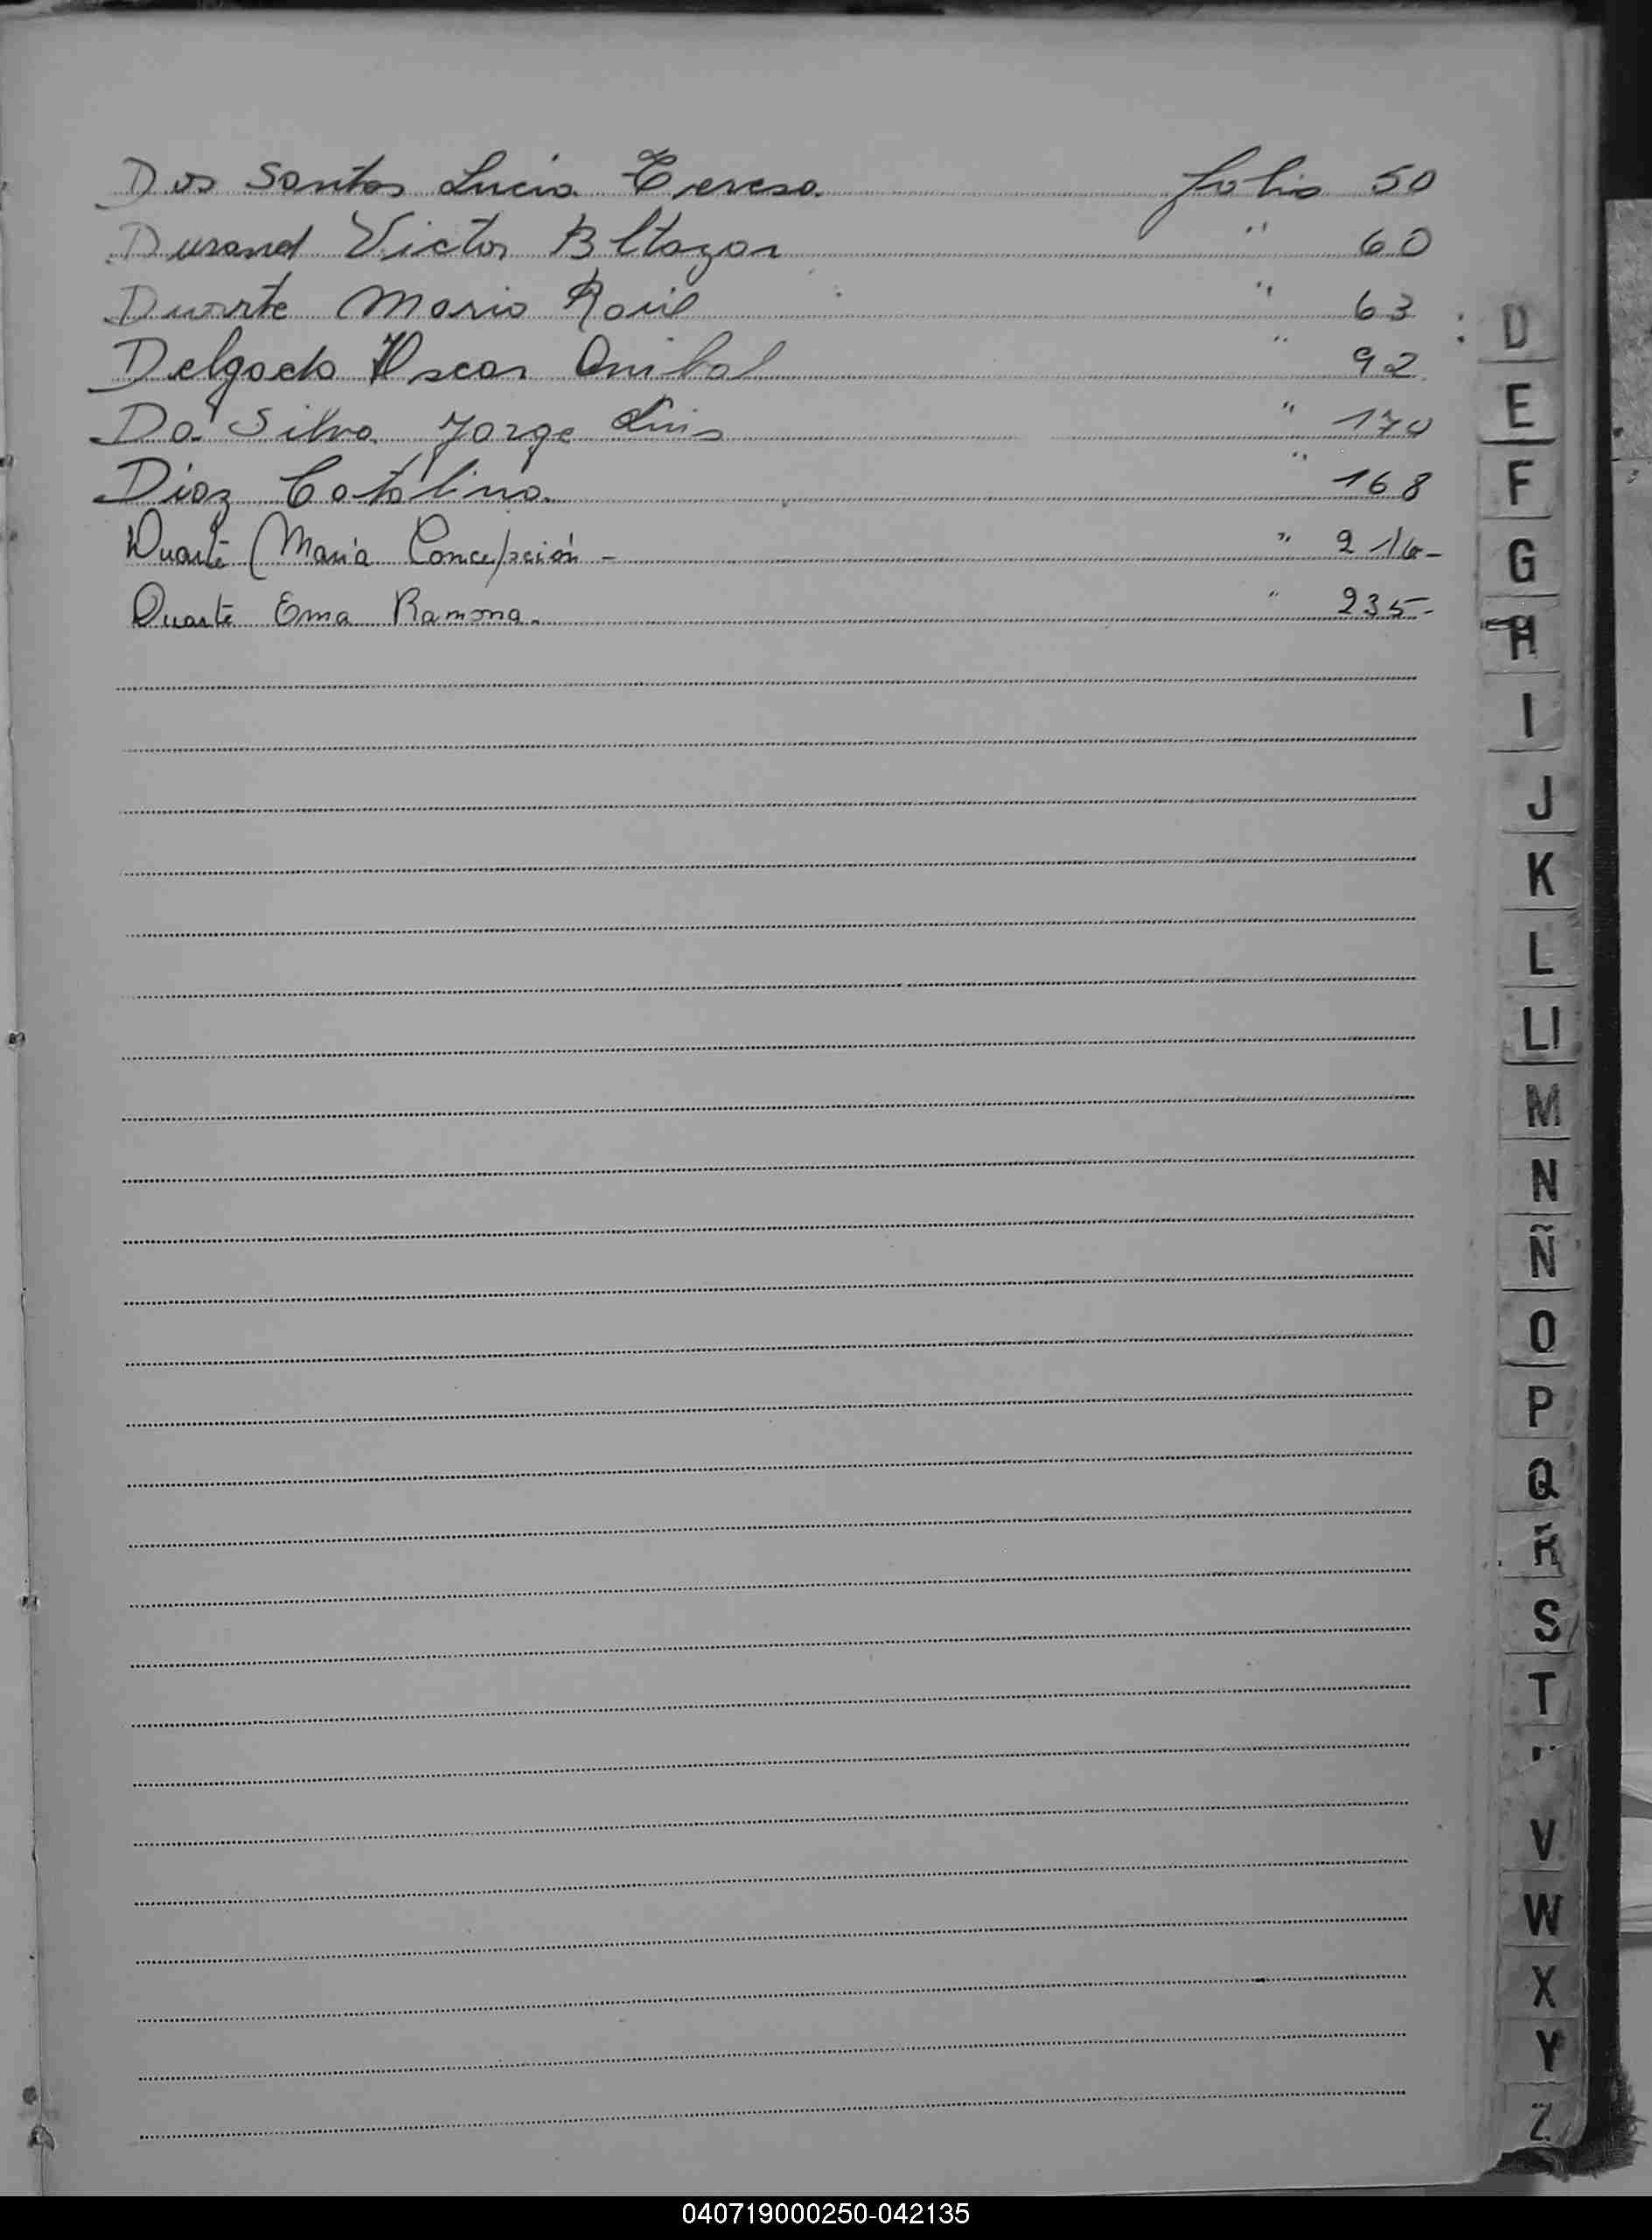 Dos Santos Lucia Teresa folio 50
Durand Victor Bltazar " 60
Duarte Mario Raúl " 63
Delgado Oscar Anibal " 92
Da Silva Jorge Luis " 170
Diaz Catalina " 168
Duarte Maria Concepción - " 216-
Duarte Ema Ramona. " 235-
D
E
F
G
H
I
J
K
L
Ll
M
N
Ñ
O
P
Q
R
S
T
V
W
X
Y
Z
040719000250-042135